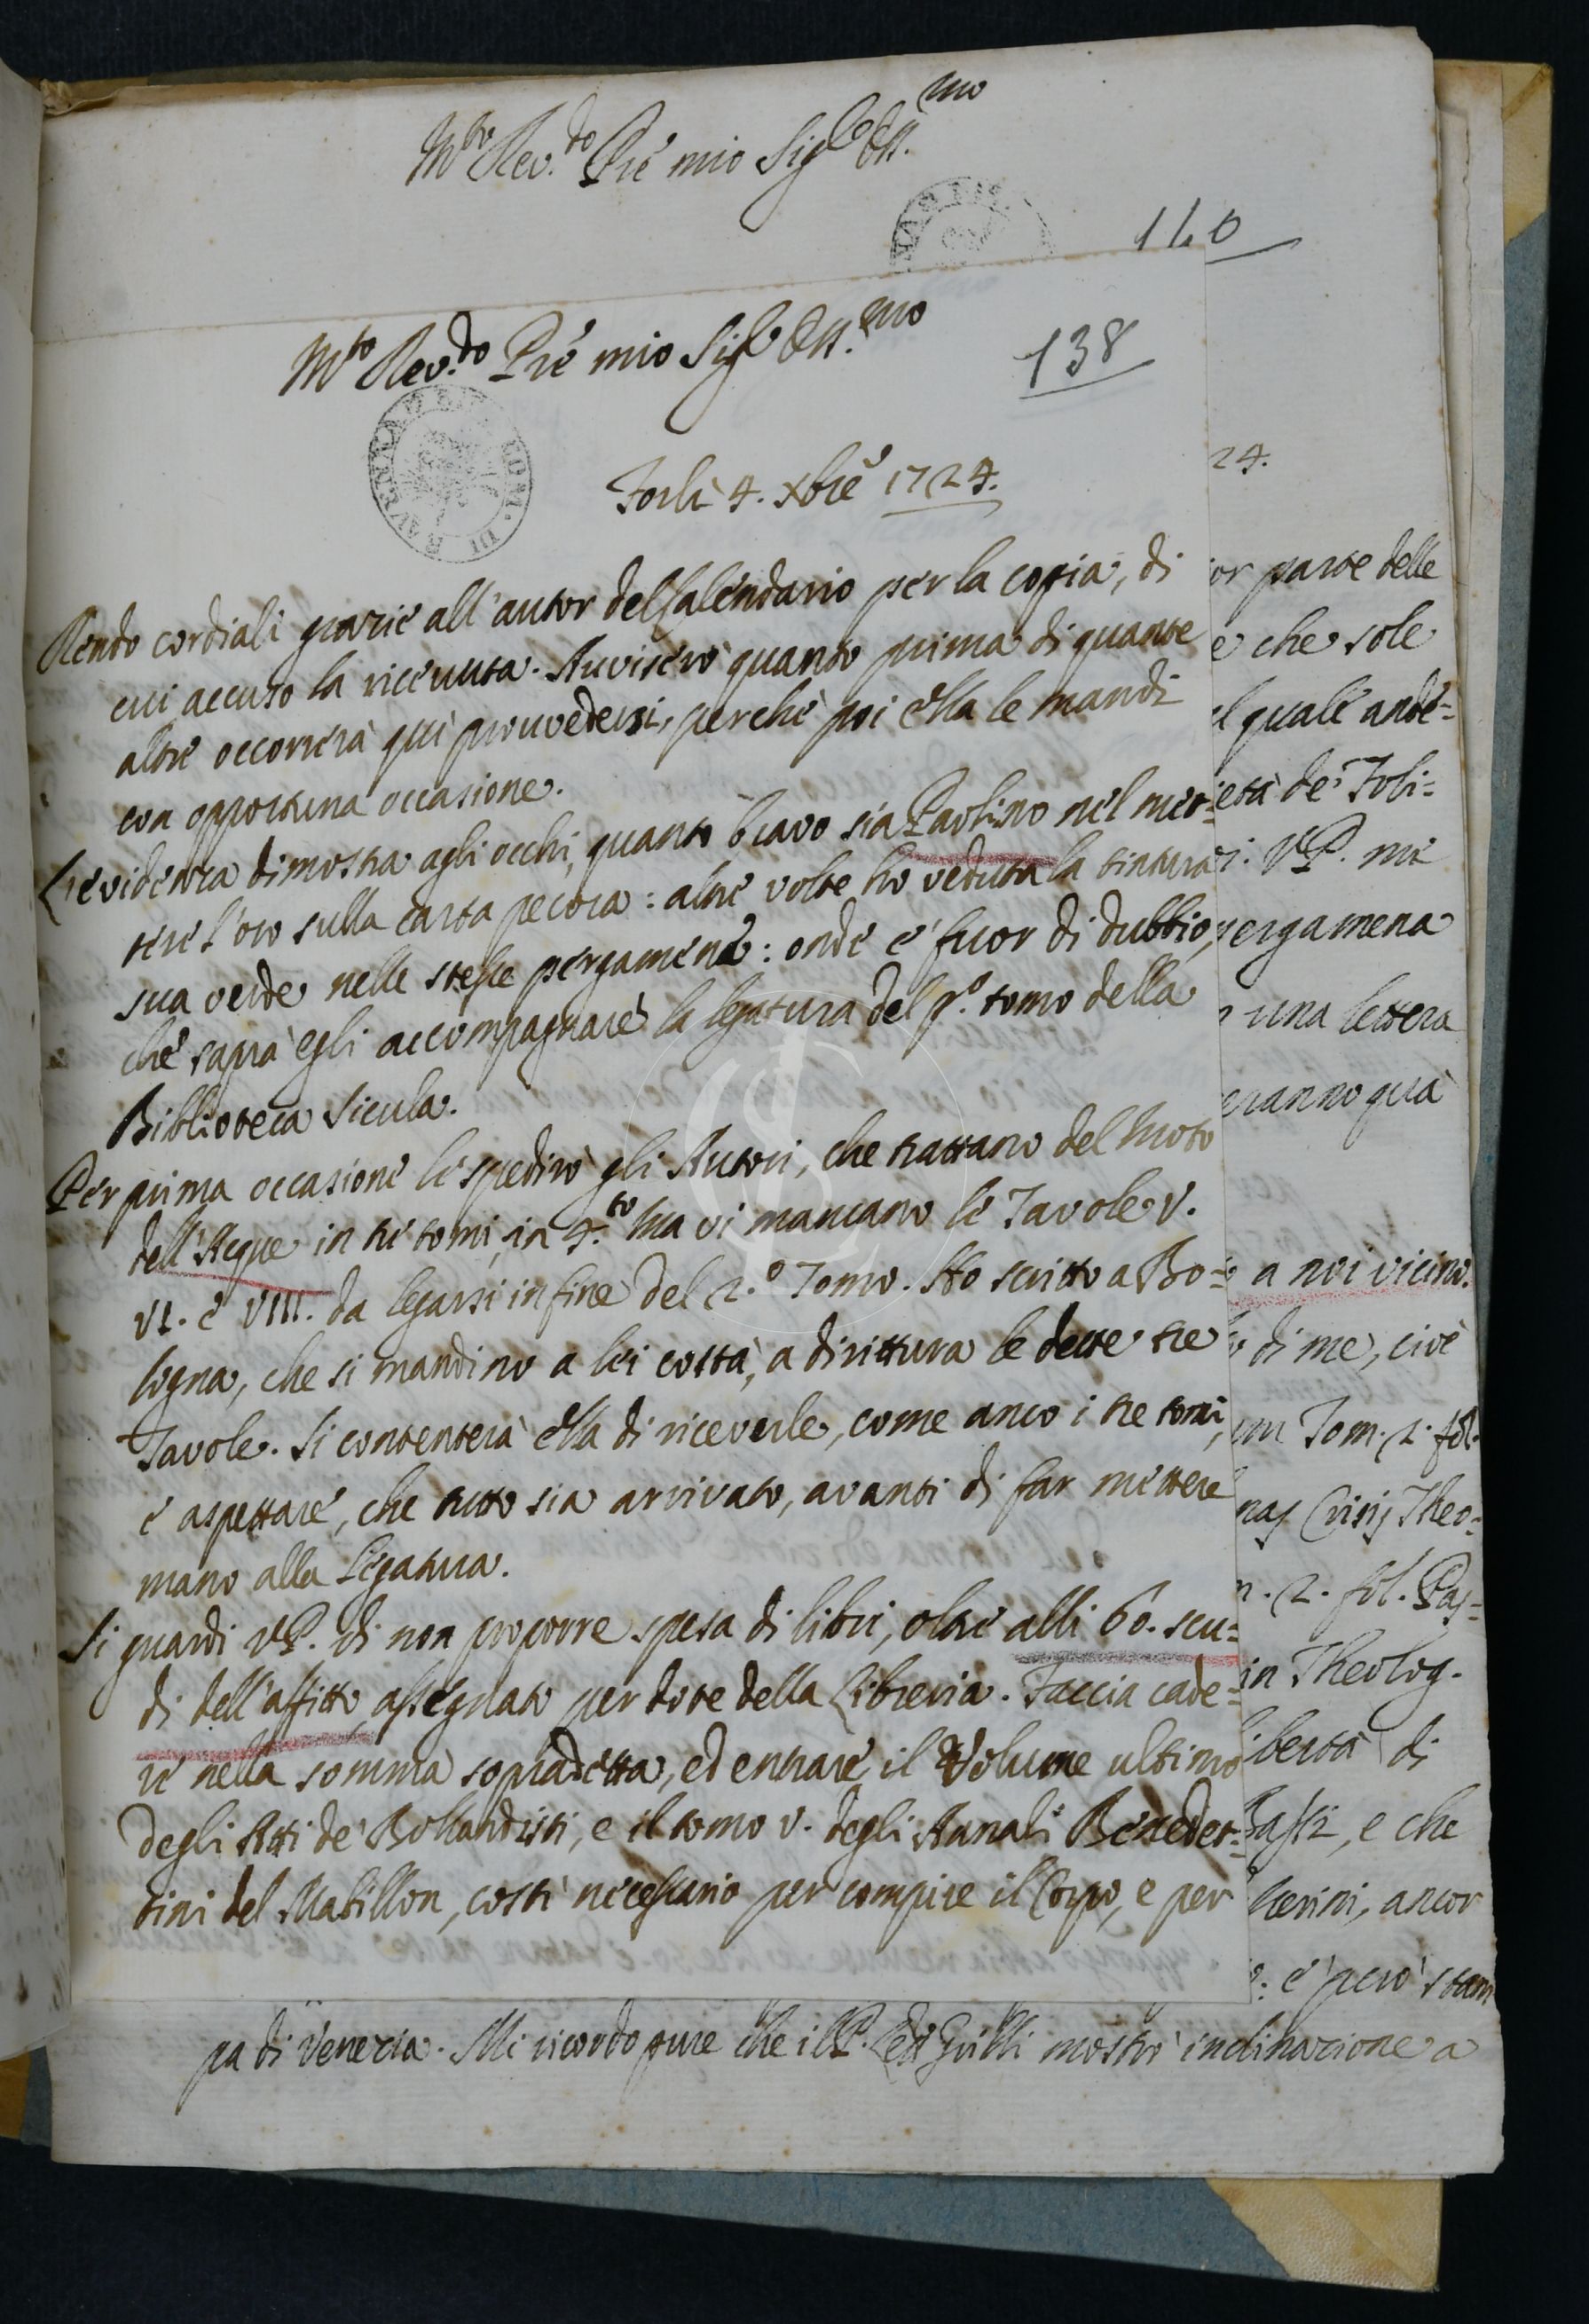 M.to Rev.do Prē mio Sig.re Oss.mo
140
M.to Rev.do Prē mio Sig.re Oss.mo
138
Forlì 4. Xbrē 1724.
Rendo cordiali grazie all'autor del Calendario per la copia, di
cui accuso la ricevuta. Avviserò quanto prima di quante
altre occorrerà qui provvedersi, perchè poi ella le mandi
con opportuna occasione.
L'evidenza dimostra agli occhi, quanto bravo sia Paolino nel met=
tere l'oro sulla carta pecora: altre volte ho veduta la tintura
sua verde nelle stesse pergamene: onde è fuor di dubbio,
che saprà egli accompagnare la legatura del p.o tomo della
Biblioteca Sicula.
Per prima occasione le spedirò gli Autori, che trattano del Moto
dell'Acque in tre tomi, in 4.to Ma vi mancano le Tavole V.
VI. e VIII. da legarsi in fine del 2.o Tomo. Ho scritto a Bo=
logna, che si mandino a lei costà, a dirittura le dette tre
Tavole. Si contenterà ella di riceverle, come anco i tre tomi,
e aspettare, che tutto sia arrivato, avanti di far mettere
mano alla legatura.
Si guardi V.P. di non proporre spesa di libri, oltre alli 60. scu=
di dell'affitto assegnato per dote della Libreria. Faccia cade=
re nella somma sopradetta, ed entrare il Volume ultimo
degli Atti de' Bollandisti, e il tomo V. degli Annali Benedet=
tini del Mabillon, costì necessario per compire il Corpo, e per
24.
ior parte delle
e che sole
l quale andè=
età de' Foli=
i. V.P. mi
pergamena
una lettera
eranno quà
a noi vicino.
di me, cioè
um Tom. 2. fol.
nas Crisis Theo=
m. 2. fol. Pas=
in Theolog.
libertà di
Basti, e che
herini, ancor
: è però stam
pa di Venezia. Mi ricordo pure che il P. mostrò inclinazione a